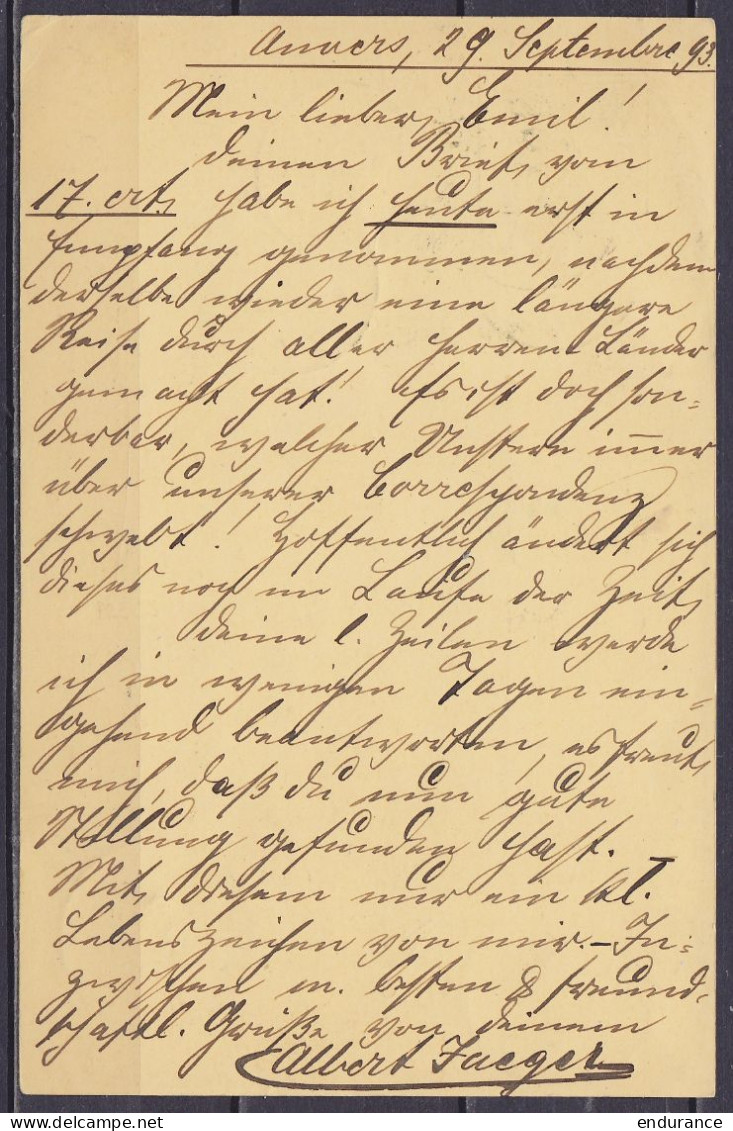 Anvers, 29. Septembre 93.
Mein lieber Emil!
Deinen Brief vom
17. crt. habe ich heute erst in
Empfang genommen, nachdem
derselbe wieder eine längere
Reise durch aller Herren Länder
gemacht hat! Es ist doch son=
derbar, welcher Unstern immer
über unserer Correspondenz
schwebt! Hoffentlich ändert sich
dieses noch im Laufe der Zeit.
Deine l. Zeilen werde
ich in wenigen Tagen ein=
gehend beantworten, es freut
mich, daß Du nun gute
Stellung gefunden hast.
Mit diesem nur ein kl.
Lebenszeichen von mir. – In=
zwischen m. besten & freund=
schaftl. Grüße von Deinem
Albert Jaeger
delcampe.net
endurance